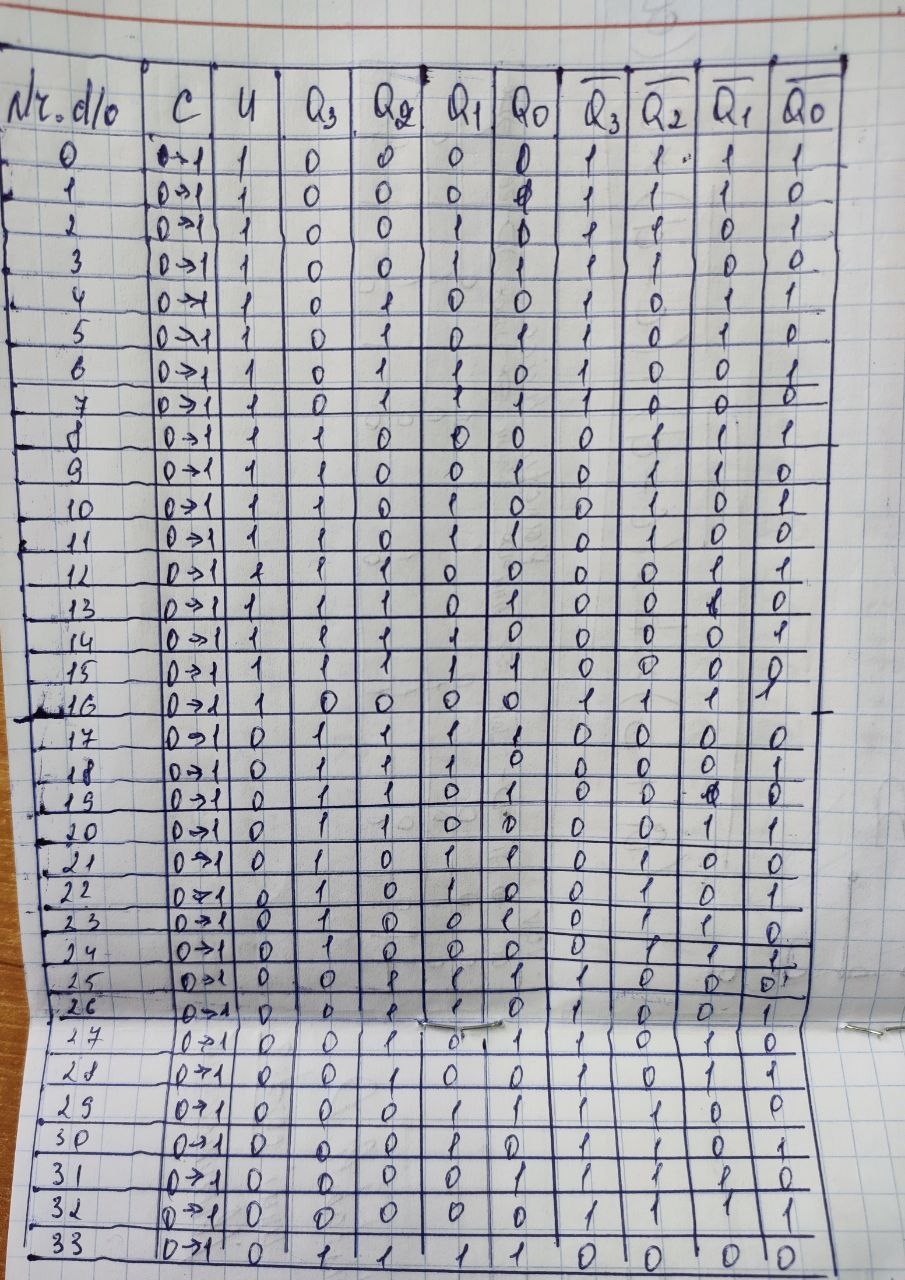 Nr. d/o C U Q3 Q2 Q1 Q0 Q̅3 Q̅2 Q̅1 Q̅0
0 0→1 1 0 0 0 0 1 1 1 1
1 0→1 1 0 0 0 1 1 1 1 0
2 0→1 1 0 0 1 0 1 1 0 1
3 0→1 1 0 0 1 1 1 1 0 0
4 0→1 1 0 1 0 0 1 0 1 1
5 0→1 1 0 1 0 1 1 0 1 0
6 0→1 1 0 1 1 0 1 0 0 1
7 0→1 1 0 1 1 1 1 0 0 0
8 0→1 1 1 0 0 0 0 1 1 1
9 0→1 1 1 0 0 1 0 1 1 0
10 0→1 1 1 0 1 0 0 1 0 1
11 0→1 1 1 0 1 1 0 1 0 0
12 0→1 1 1 1 0 0 0 0 1 1
13 0→1 1 1 1 0 1 0 0 1 0
14 0→1 1 1 1 1 0 0 0 0 1
15 0→1 1 1 1 1 1 0 0 0 0
16 0→1 1 0 0 0 0 1 1 1 1
17 0→1 0 1 1 1 1 0 0 0 0
18 0→1 0 1 1 1 0 0 0 0 1
19 0→1 0 1 1 0 1 0 0 1 0
20 0→1 0 1 1 0 0 0 0 1 1
21 0→1 0 1 0 1 1 0 1 0 0
22 0→1 0 1 0 1 0 0 1 0 1
23 0→1 0 1 0 0 1 0 1 1 0
24 0→1 0 1 0 0 0 0 1 1 1
25 0→1 0 0 1 1 1 1 0 0 0
26 0→1 0 0 1 1 0 1 0 0 1
27 0→1 0 0 1 0 1 1 0 1 0
28 0→1 0 0 1 0 0 1 0 1 1
29 0→1 0 0 0 1 1 1 1 0 0
30 0→1 0 0 0 1 0 1 1 0 1
31 0→1 0 0 0 0 1 1 1 1 0
32 0→1 0 0 0 0 0 1 1 1 1
33 0→1 0 1 1 1 1 0 0 0 0